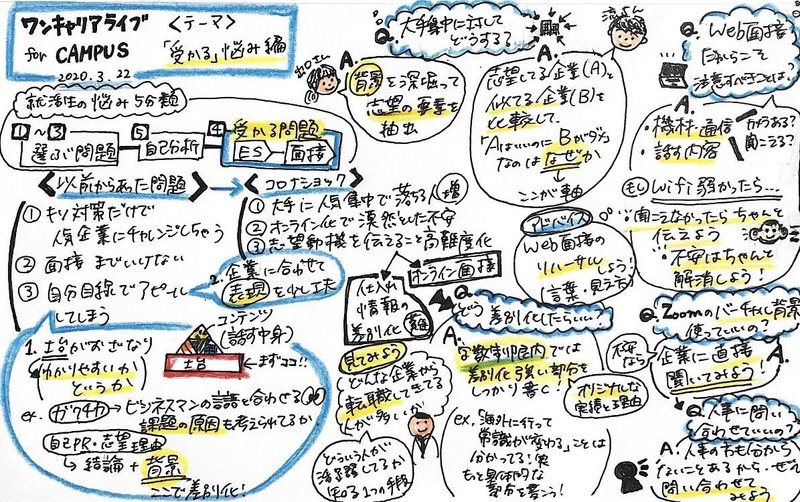 ワンキャリアライブ
for CAMPUS
2020.3.22
<テーマ>
「受かる」悩み編
就活生の悩み5分類
1～3
選ぶ問題
5
自己分析
4
受かる問題
ES
面接
以前からあった問題
① もり対策だけで
人気企業にチャレンジしちゃう
② 面接までいけない
③ 自分目線でアピール
してしまう
コロナショック
① 大手に人気集中で落ちる人増
② オンライン化で漠然とした不安
③ 志望動機を伝えること高難度化
1. 土台がおざなり
わかりやすいか
というか
コンテンツ
(話す中身)
土台
まずココ!!
ex. ガクチカ→ビジネスマンの言語を合わせる
課題の原因も考えられてるか
自己PR・志望理由
↳ 結論 + 背景
ここで差別化!
2. 企業に合わせて
表現を少し工夫
仕入れ
情報の
差別化
難
オンライン面接
見てみよう
どんな企業から
転職してきてる
人が多いか
どういう人が
活躍してるか
知る1つの手段
Q. 大手集中に対して
どうする?
A.
背景を深堀って
志望の要素を
抽出
A.
志望してる企業(A)と
似てる企業(B)を
比較して、
「AはいいのにBがダメ
なのはなぜか
ここが軸
アドバイス
Web面接の
リハーサルしよう!
(言葉・見え方)
Q. どう差別化したらいい?
A.
字数制限内では
差別化強い部分を
しっかり書く!
オリジナルな
実績と理由
ex.「海外に行って
常識が変わる」ことは
分かってる!
もっと具体的な
部分を書こう!
Q. Web面接
だからこそ
注意すべきことは?
A.
・機材・通信
・話す内容
聞こえる?
もしWifi弱かったら…
聞こえなかったらちゃんと
伝えよう
不安はちゃんと
解消しよう!
Q. Zoomのバーチャル背景
使っていいの?
不安なら
企業に直接
聞いてみよう!
A.
Q. 人事に問い
合わせていいの?
A. 人事のわも分から
ないことあるから、ぜひ
問い合わせて
みよう